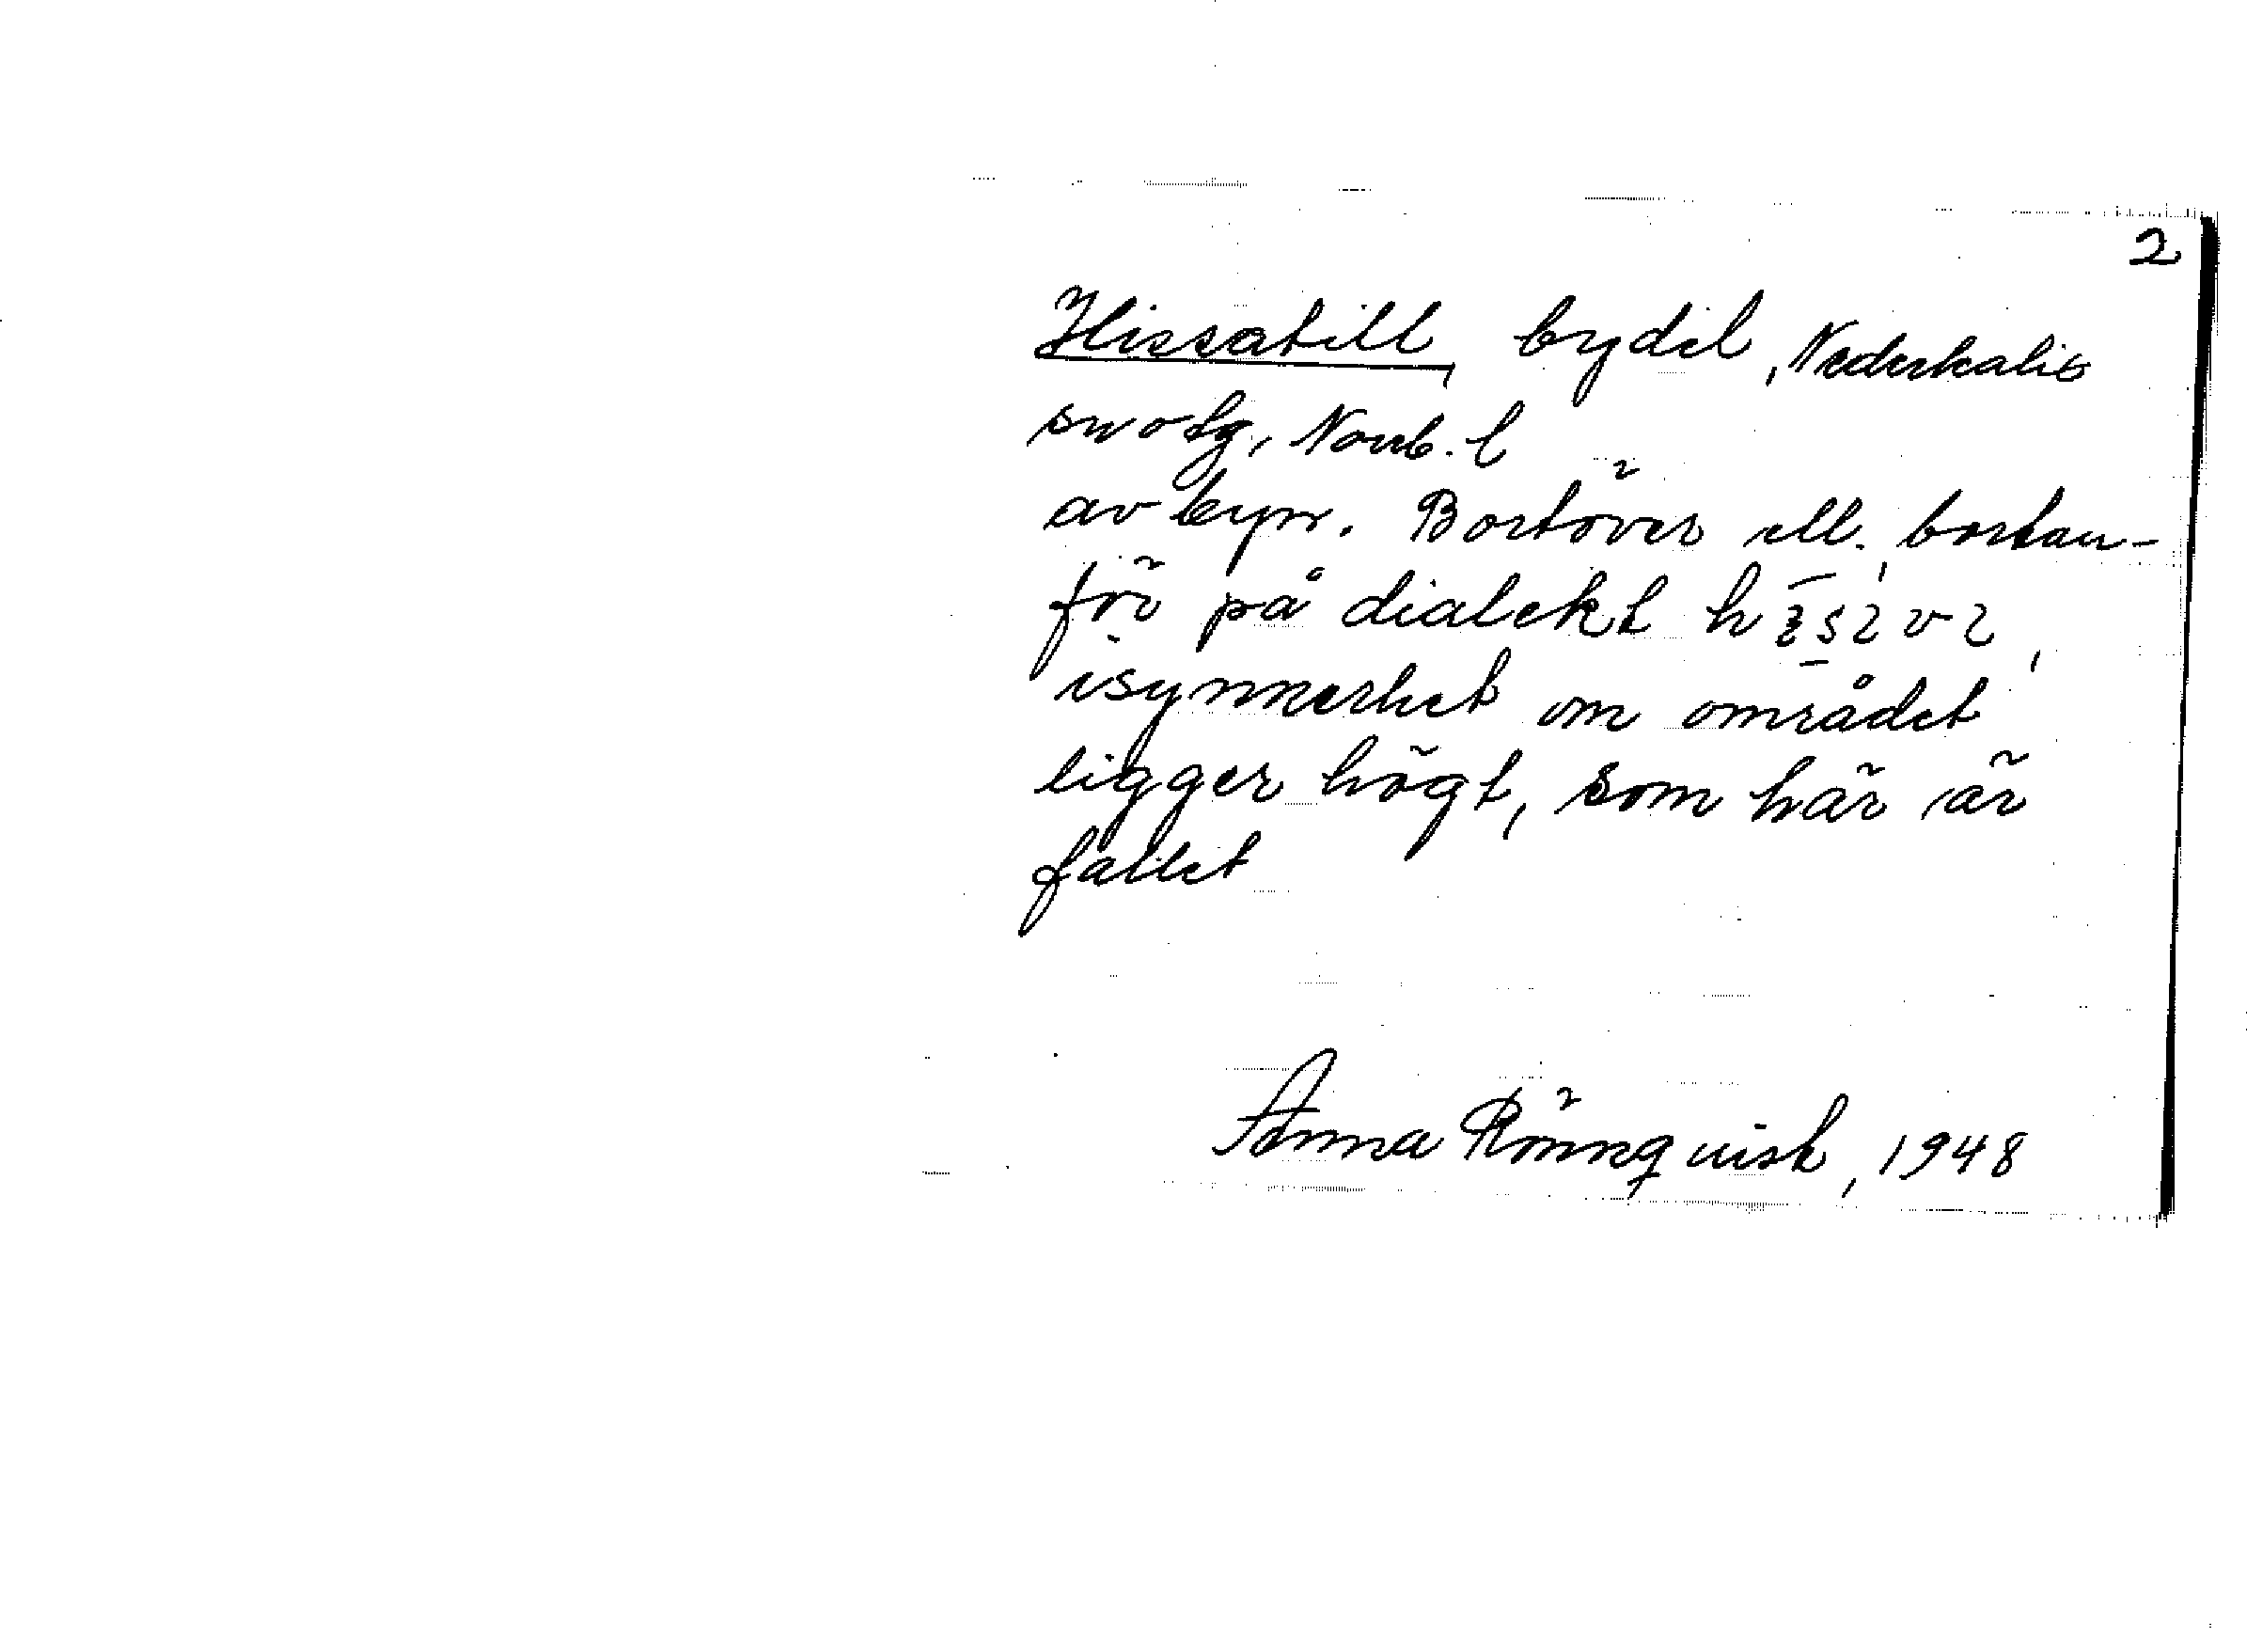 2
Hissatill, bydel, Nederkalix
sn o tg, Norrb. l
av byn. Bortöver ell. bortan-
för på dialekt
isynnerhet om området
ligger högt, som här är
fallet
Anna Rönnqvist, 1948